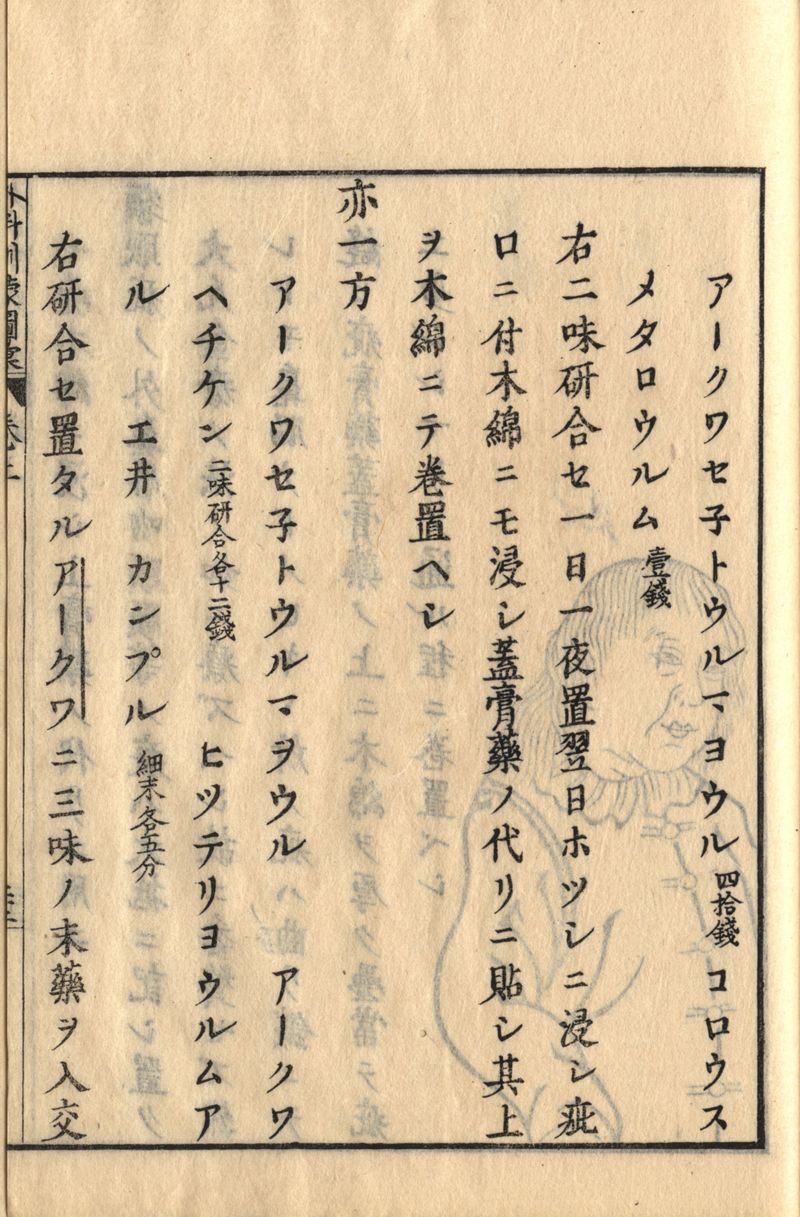 アークワセ子トウルマヨウル四拾錢コロウス
メタロウルム壹錢
右二味研合セ一日一夜置翌日ホツシニ浸シ疵
ロニ付木綿ニモ浸シ蓋膏藥ノ代リニ貼シ其上
ヲ木綿ニテ巻置ヘシ
亦一方
アークワセ子トウルマヲウル　アークワ
ヘチケン二味研合各十二錢　ヒツテリヨウルムア
ル　エ井　カンプル細末各五分
右研合セ置タルアークワニ三味ノ末藥ヲ入交